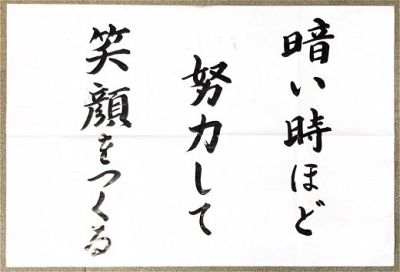 暗い時ほど
努力して
笑顔をつくる